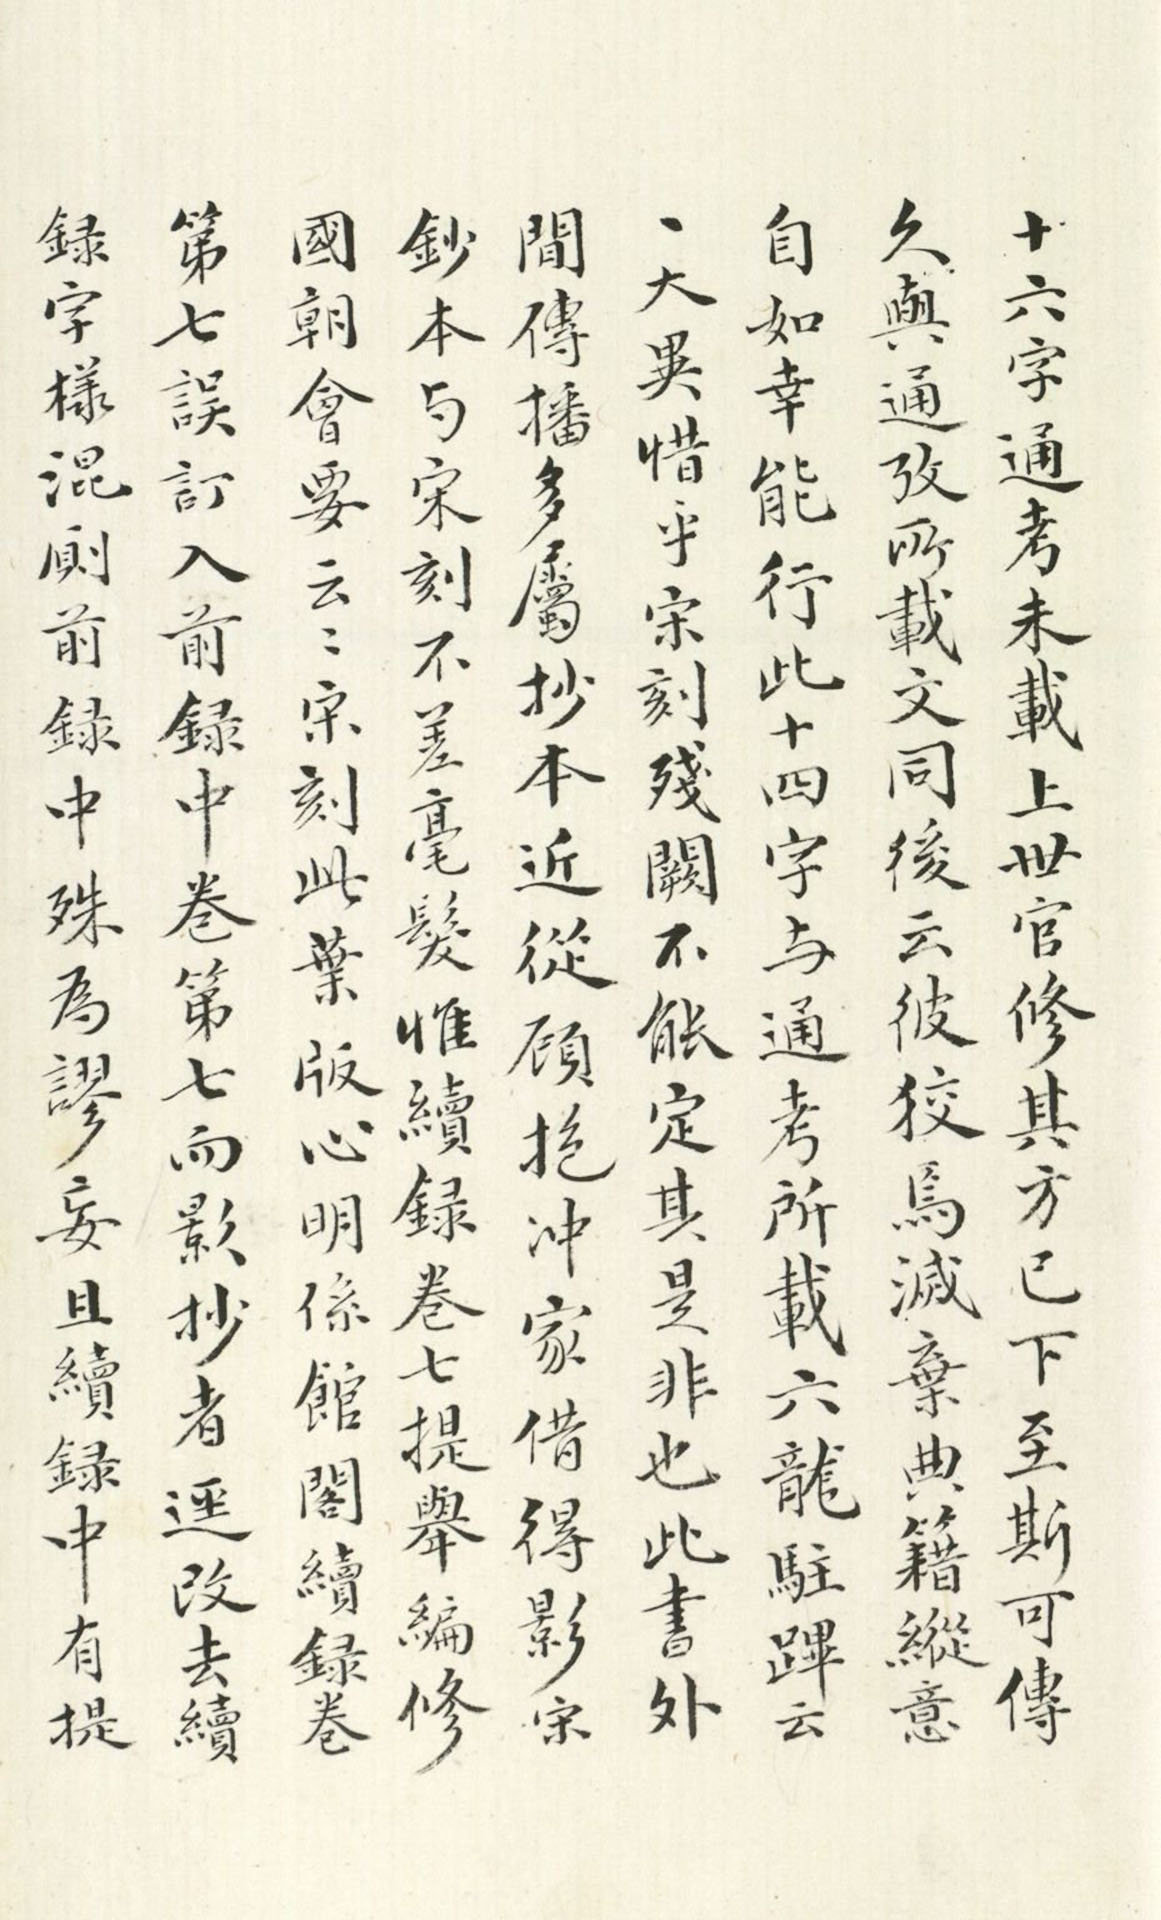 十六字通考未載上世官修其方已下至斯可傳
久與通攷所載文同後云彼狡焉滅棄典籍縱意
自如幸能行此十四字与通考所載六龍駐蹕云
〻大異惜乎宋刻殘闕不能定其是非也此書外
間傳播多屬抄本近從顧抱冲家借得影宋
鈔本与宋刻不差毫髮惟續録卷七提舉編修
國朝會要云〻宋刻此葉版心明係館閣續録卷
第七誤訂入前録中卷第七而影抄者逕改去續
録字様混厠前録中殊為謬妄且續録中有提